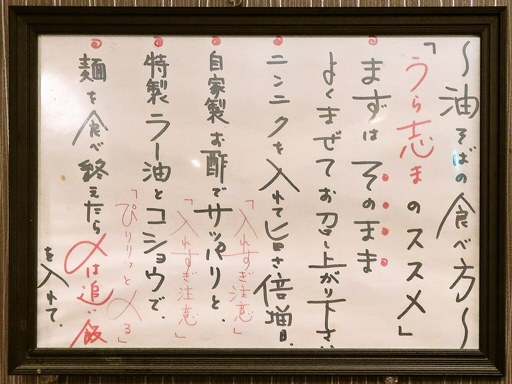 ～油そばの食べ方～
「うら志まのススメ」
まずはそのまま
よくまぜてお召し上がり下さい
ニンニクを入れて旨さ倍増。
「入れすぎ注意」
自家製お酢でサッパリと、
「入れすぎ注意」
特製ラー油とコショウで、
「ぴりりっと〆る」
麺を食べ終えたら〆は追い飯
を入れて、